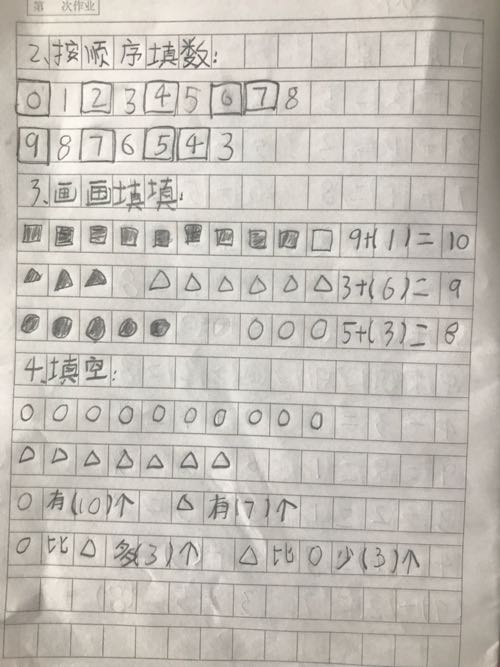 第 次作业
2、按顺序填数:
0 1 2 3 4 5 6 7 8
9 8 7 6 5 4 3
3、画画填填:
9+(1)=10
3+(6)=9
5+(3)=8
4、填空:
○有(10)个 △有(7)个
○比△多(3)个 △比○少(3)个